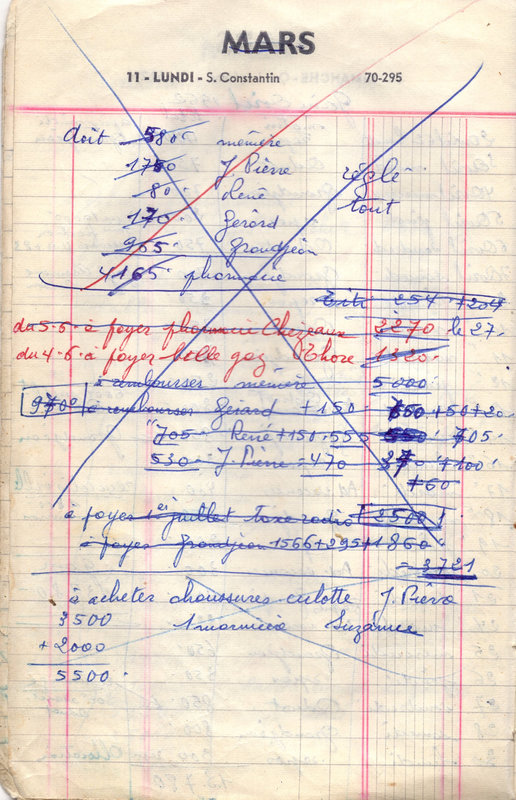 MARS
11 - LUNDI - S. Constantin 70-295
doit 580 mémère
1750 J. Pierre réglé
80 René tout
170 Gérard
965 Grandjean
4165 pharmacie
254 +204
du 5-6 à payer pharmacie Chezeaux 3270 le 27
du 4-6 à payer belle gaz Thore 1320
à rembourser mémère 5000
9700 à rembourser Gérard +150 +50+20
705 René +150 555 550 705
530 J. Pierre = 470 +100
+60
à payer 1er juillet taxe radio 2500
à payer Grandjean 1566+295+1860
= 3721
à acheter chaussures culotte J. Pierre
3500 Suzanne
+ 2000
5500